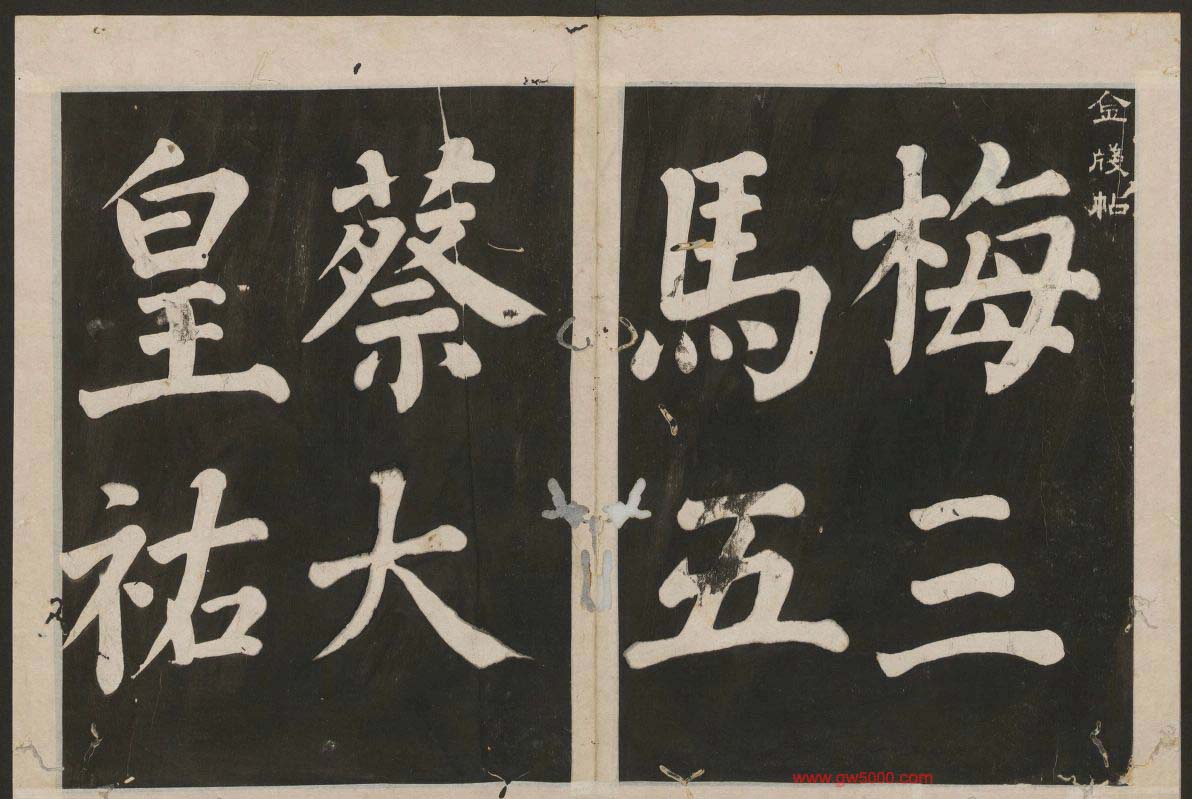 金牋帖
梅三
馬五
蔡大
皇祐
www.gw5000.com